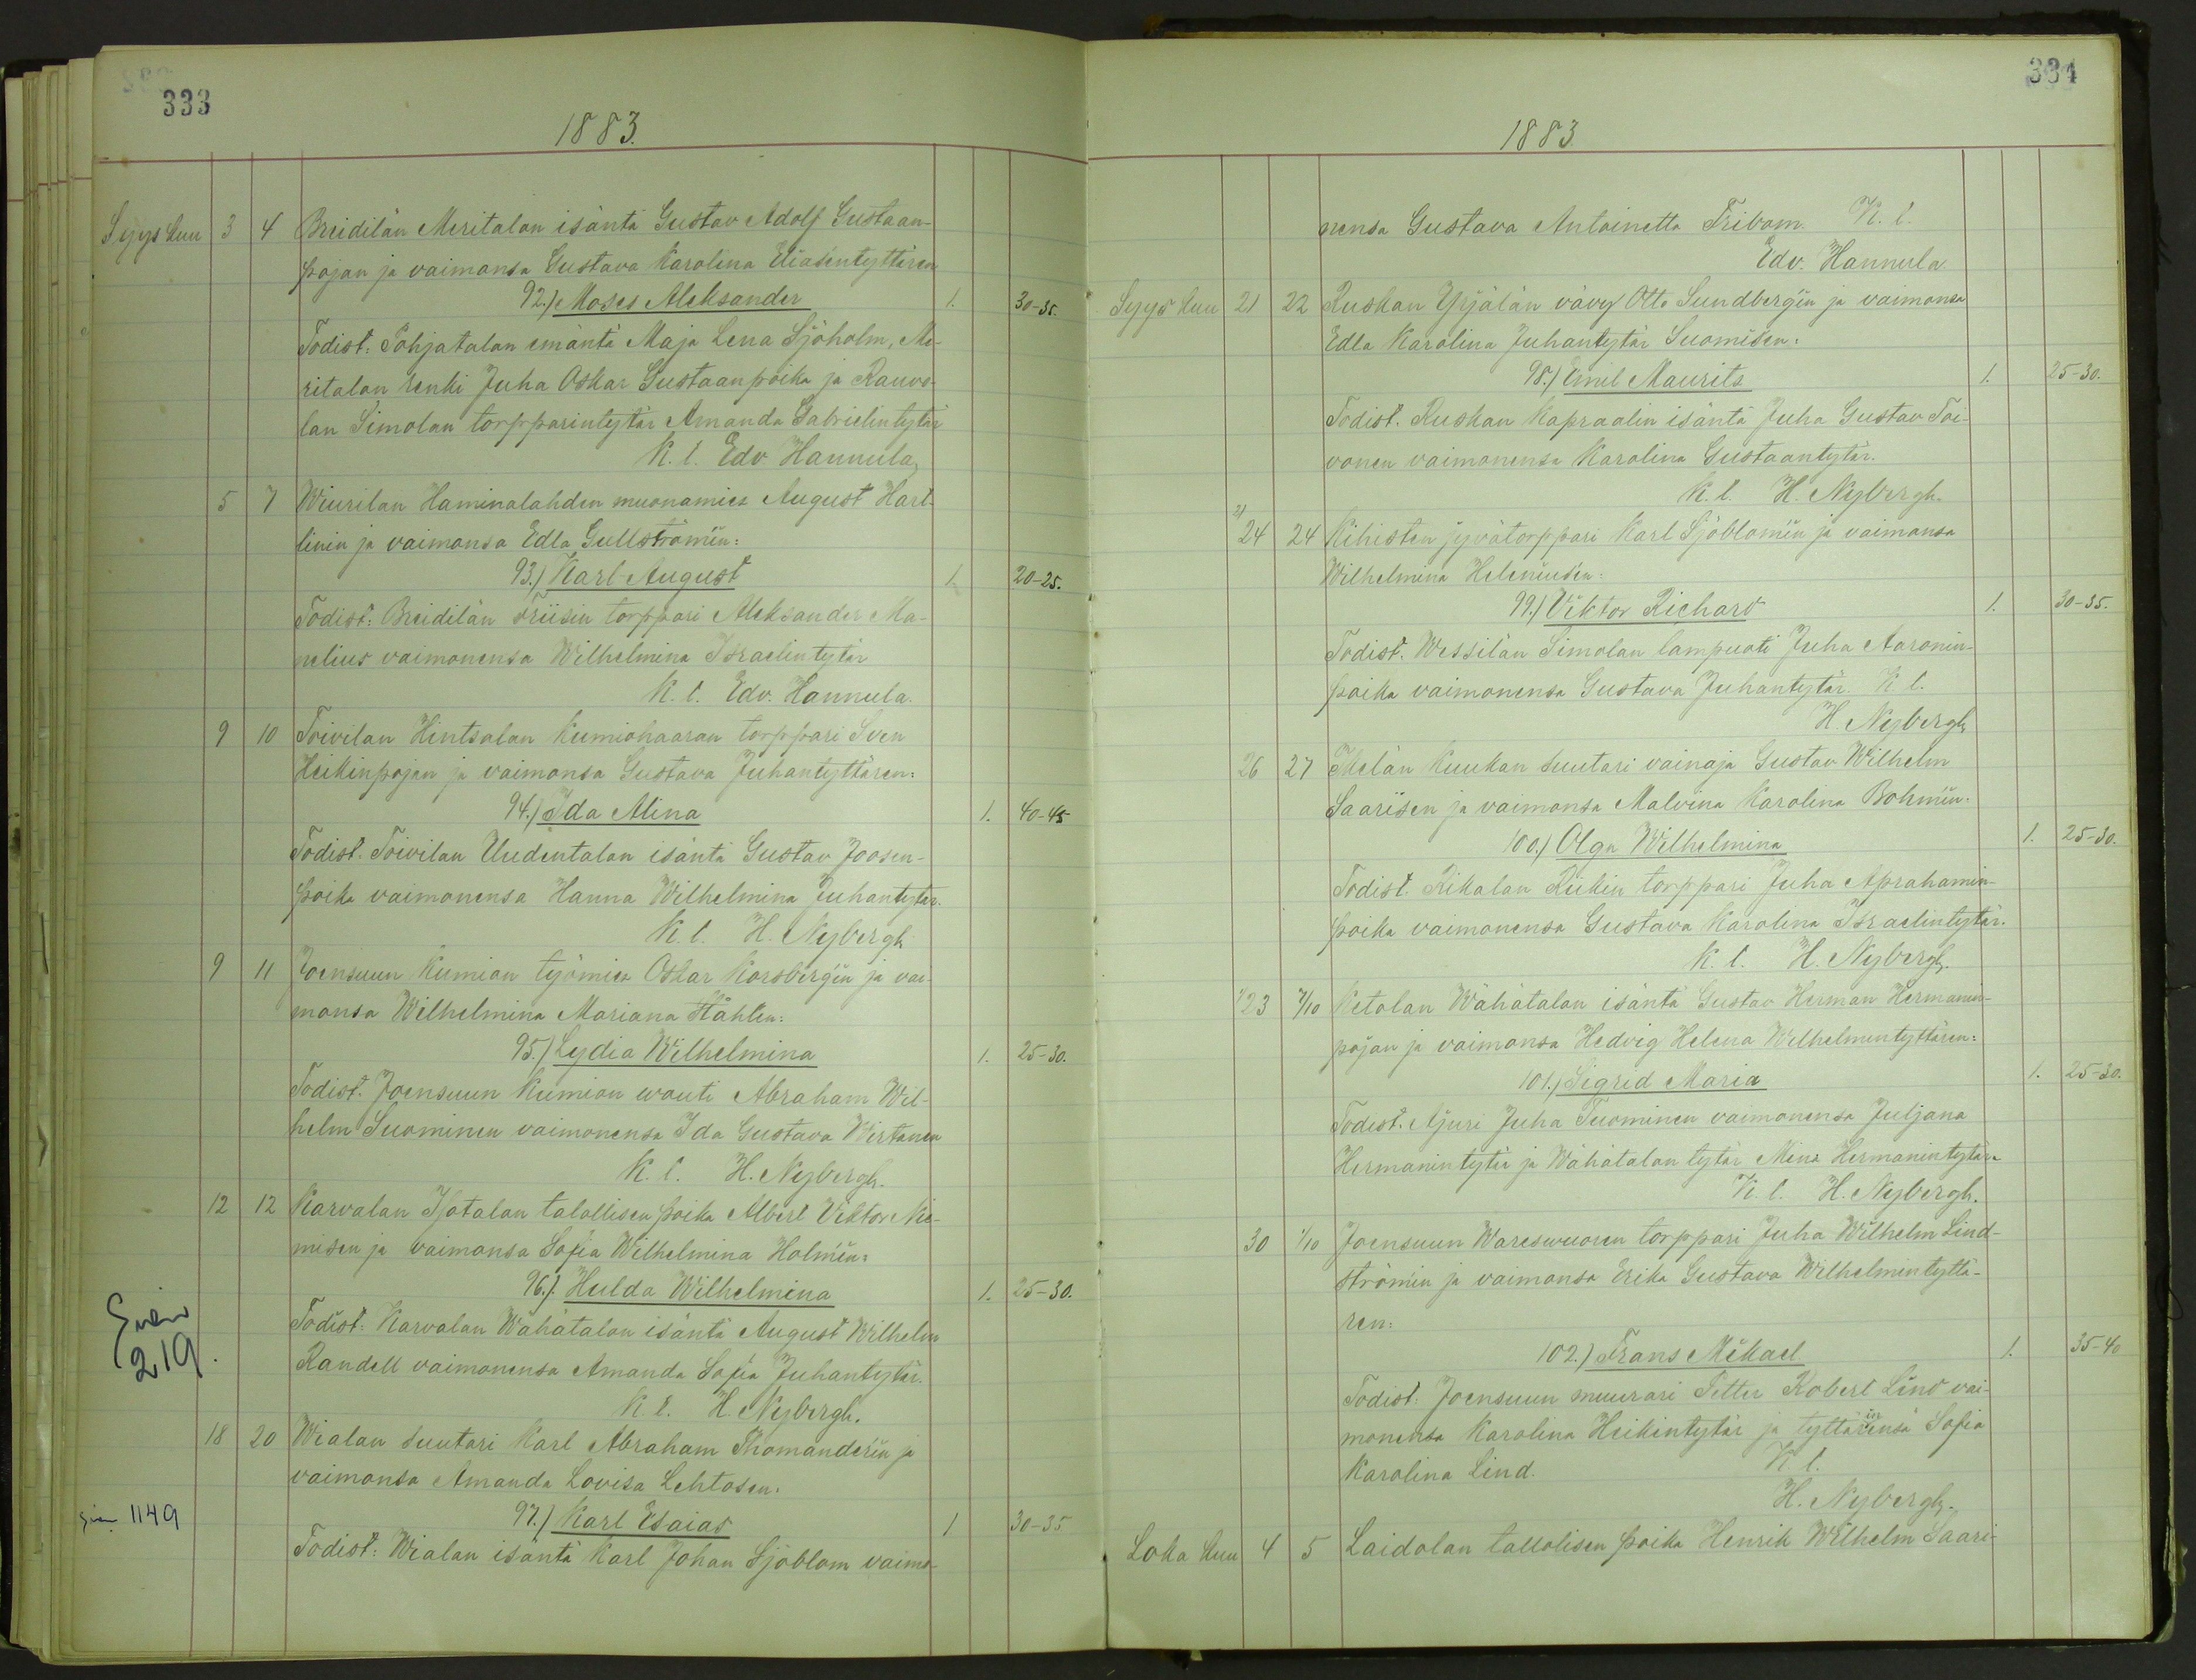 333
1883.
Syys kuu 3 4 Breidilän Meritalon isäntä Gustav Adolf Gustaan-
pojan ja vaimonsa Gustava Karolina Eliasentyttären
92.) Moses Aleksander 1. 30-35.
Todist: Pohjatalon emäntä Maja Lena Sjöholm, Me-
ritalon renki Juha Oskar Gustaanpoika ja Rauvo-
lan Simolan torpparintytär Amanda Gabrielintytär
K. l. Edv Hannula,
5 7 Wiurilan Haminalahden muonamies August Hart-
linin ja vaimonsa Edla Gullströmin:
93.) Karl August 1. 20-25.
Todist: Breidilän Friisin torppari Aleksander Ma-
nelius vaimonensa Wilhelmina Israelintytär
K. l. Edv. Hannula.
9 10 Toivilan Hintsalan Kumiohaaran torppari Sven
Heikinpojan ja vaimonsa Gustava Juhantyttären:
94.) Ida Alina 1. 40-45
Todist. Toivilan Uudentalon isäntä Gustav Joosen-
poika vaimonensa Hanna Wilhelmina Juhantytär.
K. l. H. Nybergh
9 11 Joensuun Kumion työmies Oskar Korsbergin ja vai-
monsa Wilhelmina Mariana Ståhlen:
95.) Lydia Wilhelmina 1. 25-30.
Todist. Joensuun Kumion wouti Abraham Wil-
helm Suominen vaimonensa Ida Gustava Wirtanen
K. l. H. Nybergh.
12 12 Karvalan Isotalon talollisen poika Albert Viktor Nie-
misen ja vaimonsa Sofia Wilhelmina Holmin:
96.) Hulda Wilhelmina 1. 25-30.
Todist: Karvalan Wähätalon isäntä August Wilhelm
219.
Randell vaimonensa Amanda Sofia Juhantytär.
K. l. H. Nybergh.
18 20 Wialan suutari Karl Abraham Thomanderin ja
vaimonsa Amanda Lovisa Lehtosen:
1149
97.) Karl Esaias 1 30-35
Todist: Wialan isäntä Karl Johan Sjöblom vaimo-
334
1883
nensa Gustava Antoinetta Tribom. K. l.
Edv. Hannula
Syys kuu 21 22 Ruskan Yrjälän vävy Otto Sundbergin ja vaimonsa
Edla Karolina Juhantytär Suomisen:
98.) Emil Maurits 1. 25-30.
Todist. Ruskan Kapraalin isäntä Juha Gustav Toi-
vonen vaimonensa Karolina Gustaantytär.
K. l. H. Nybergh.
21
24 24 Kihisten jyvätorppari Karl Sjöblomin ja vaimonsa
Wilhelmina Heleniusen:
99.) Viktor Richard 1. 30-35.
Todist. Wessilän Simolan lampuoti Juha Aaronin-
poika vaimonensa Gustava Juhantytär. K. l.
H. Nybergh
26 27 Ikelän Kuukan suutari vainaja Gustav Wilhelm
Saarisen ja vaimonsa Malvina Karolina Bohmin:
100.) Olga Wilhelmina 1. 25-30.
Todist. Rikalan Riikin torppari Juha Aprahamin-
poika vaimonensa Gustava Karolina Israelintytär.
K. l. H. Nybergh.
23 7/10 Ketolan Wähätalon isäntä Gustav Herman Hermanin-
pojan ja vaimonsa Hedvig Helena Wilhelmintyttären:
101.) Sigrid Maria 1. 25-30.
Todist. Ajuri Juha Tuominen vaimonensa Juljana
Hermanintytär ja Wähätalon tytär Mina Hermanintytär.
K. l. H. Nybergh.
30 1/10 Joensuun Wareswuoren torppari Juha Wilhelm Lind-
strömin ja vaimonsa Erika Gustava Wilhelmintyttä-
ren:
102.) Frans Mikael 1. 35-40
Todist: Joensuun muurari Petter Robert Lind vai-
monensa Karolina Heikintytär ja tyttärinensä Sofia
Karolina Lind. K. l.
H. Nybergh.
Loka kuu 4 5 Laidolan tallolisen poika Henrik Wilhelm Saari-